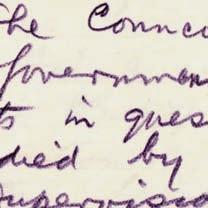 The Counc
Governmen
ts in ques
died by
supervisio